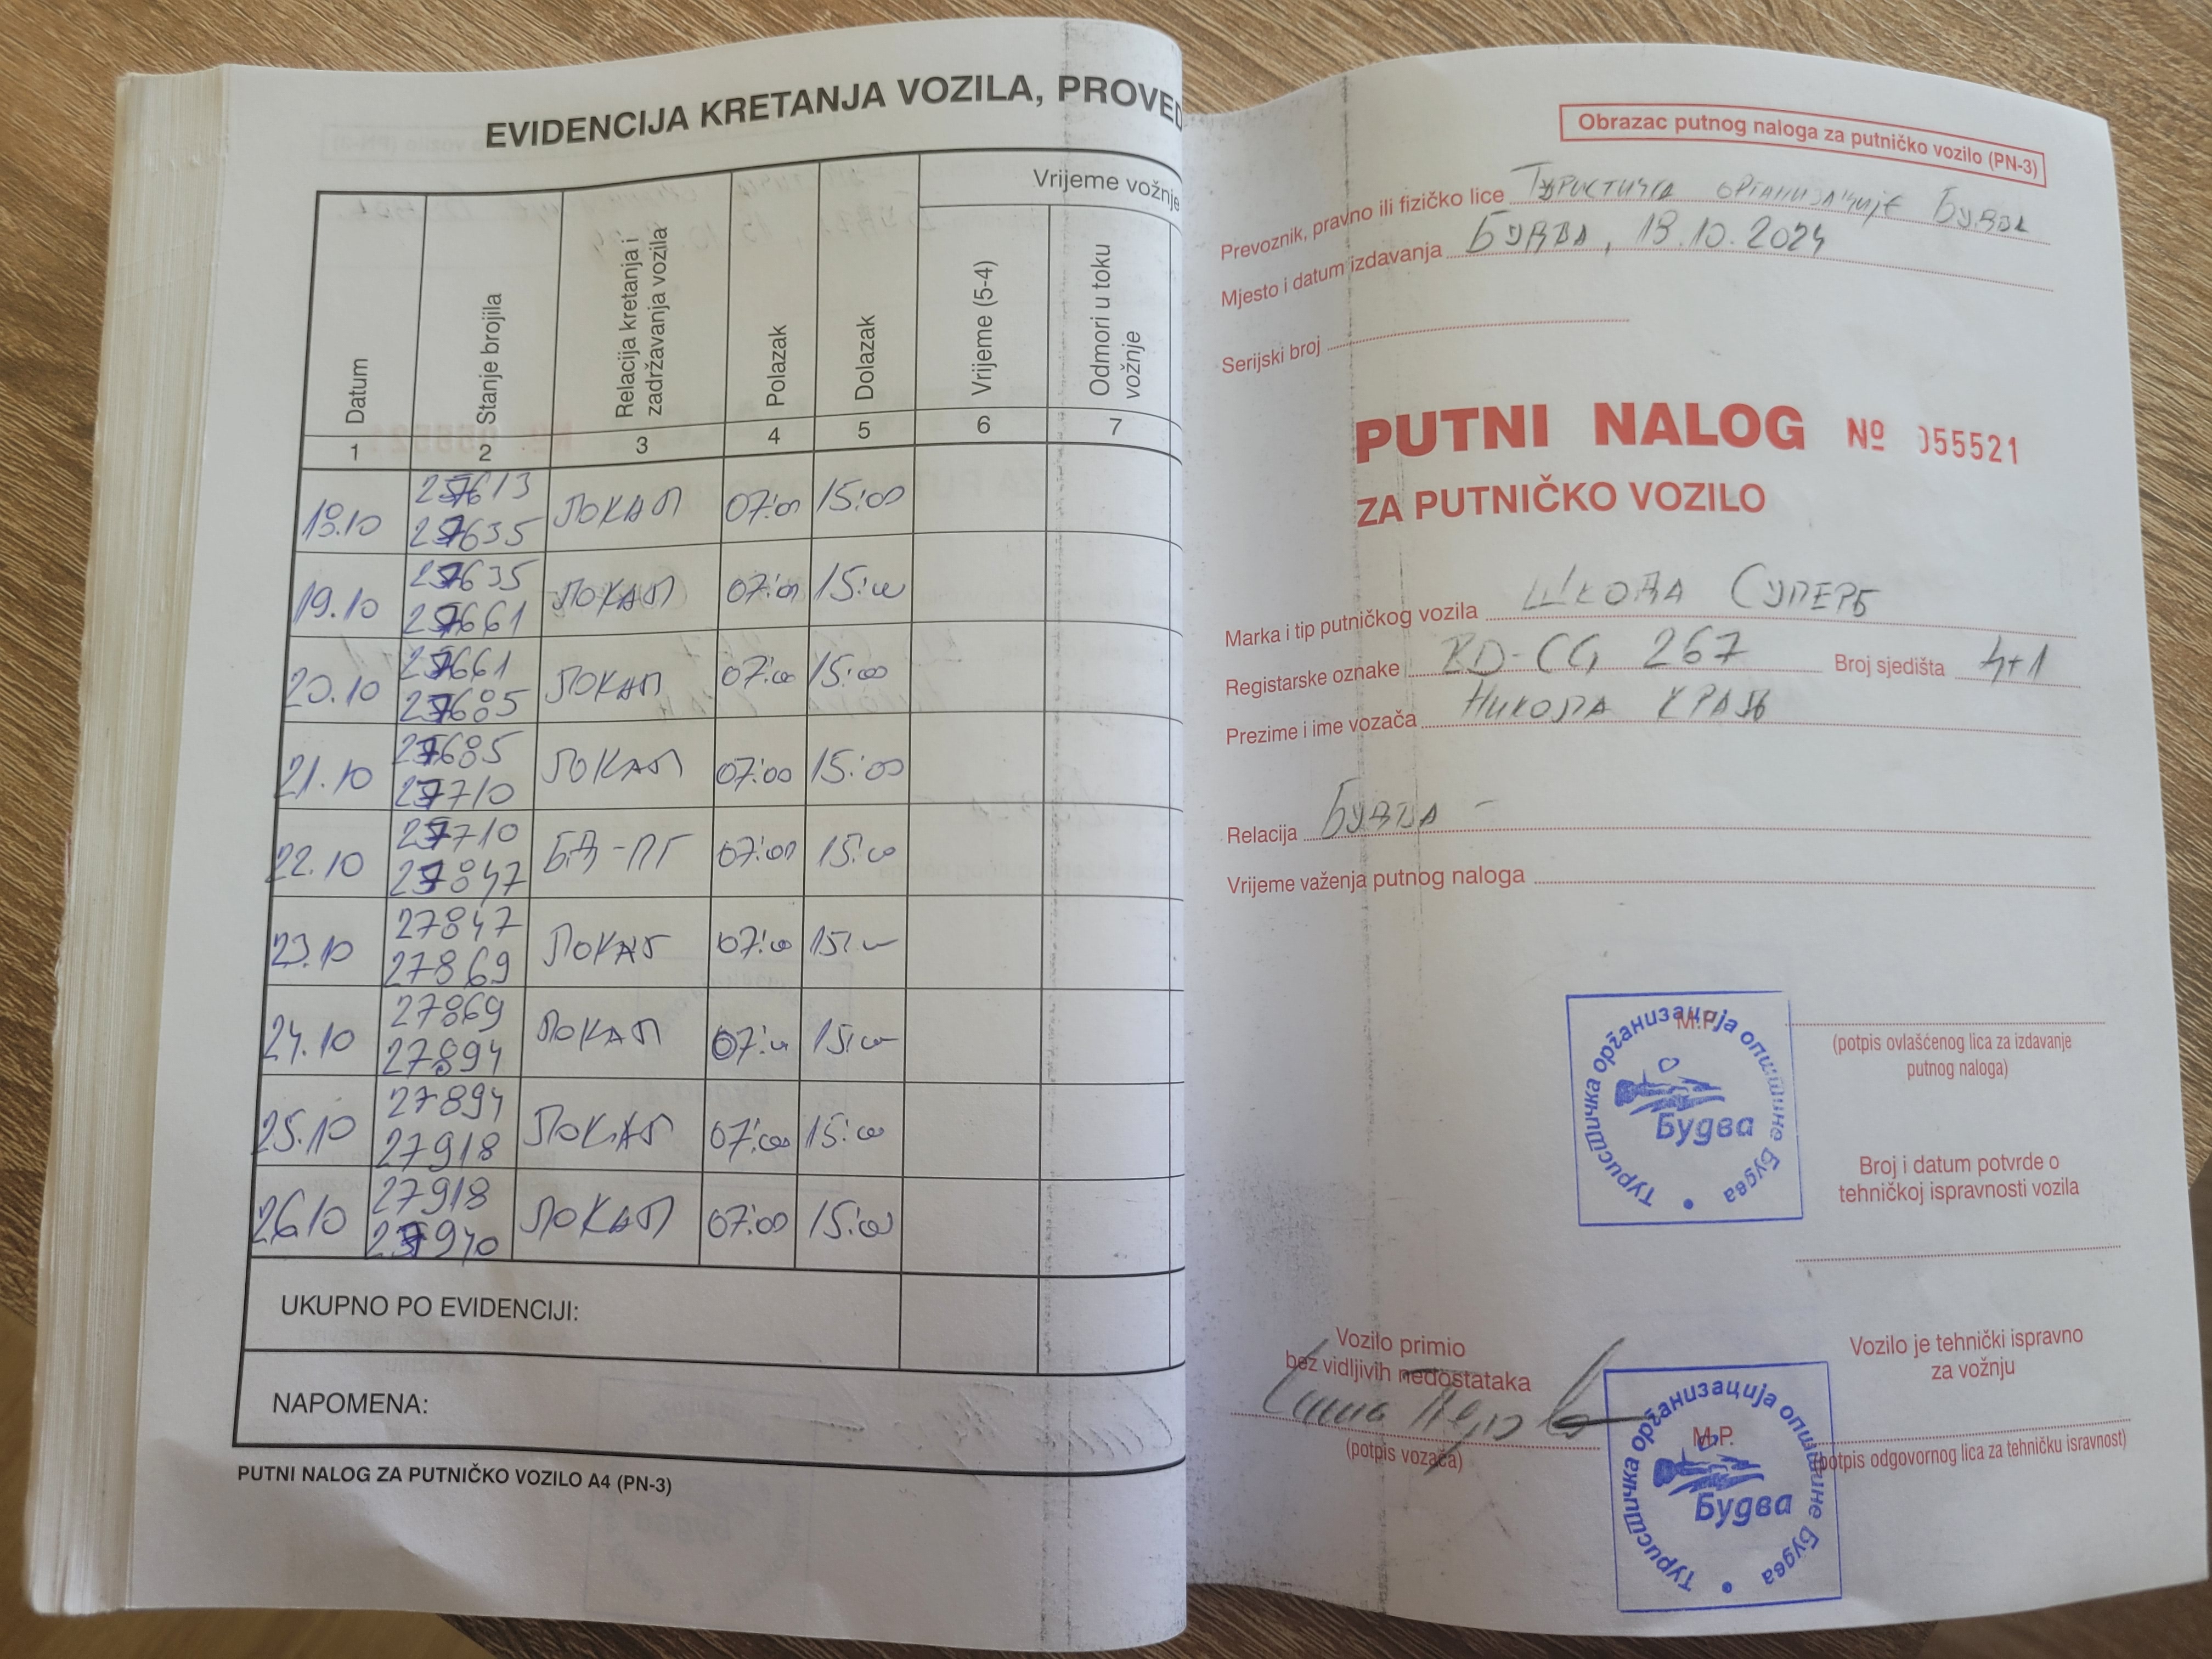 EVIDENCIJA KRETANJA VOZILA, PROVED
Datum
Stanje brojila
Relacija kretanja i zadržavanja vozila
Polazak
Dolazak
Vrijeme vožnje
Vrijeme (5-4)
Odmori u toku vožnje
1 2 3 4 5 6 7
18.10 27613 ЛОКАЛ 07:00 15:00
27635
19.10 27635 ЛОКАЛ 07:00 15:00
27661
20.10 27661 ЛОКАЛ 07:00 15:00
27685
21.10 27685 ЛОКАЛ 07:00 15:00
27710
22.10 27710 БД-ПГ 07:00 15:00
27847
23.10 27847 ЛОКАЛ 07:00 15:00
27869
24.10 27869 ЛОКАЛ 07:00 15:00
27894
25.10 27894 ЛОКАЛ 07:00 15:00
27918
26.10 27918 ЛОКАЛ 07:00 15:00
27940
UKUPNO PO EVIDENCIJI:
NAPOMENA:
PUTNI NALOG ZA PUTNIČKO VOZILO A4 (PN-3)
Obrazac putnog naloga za putničko vozilo (PN-3)
Prevoznik, pravno ili fizičko lice Туристичка организације Будва
Mjesto i datum izdavanja БУДВА, 18.10.2024
Serijski broj
PUTNI NALOG № 055521
ZA PUTNIČKO VOZILO
Marka i tip putničkog vozila ШКОДА СУПЕРБ
Registarske oznake BD-CG 267 Broj sjedišta 4+1
Prezime i ime vozača НИКОЛА КРАЉ
Relacija БУДВА -
Vrijeme važenja putnog naloga
M.P.
Туристичка организација општине Будва
Будва
(potpis ovlašćenog lica za izdavanje
putnog naloga)
Broj i datum potvrde o
tehničkoj ispravnosti vozila
Vozilo primio
bez vidljivih nedostataka
(potpis vozača)
Vozilo je tehnički ispravno
za vožnju
M.P.
Туристичка организација општине Будва
Будва
(potpis odgovornog lica za tehničku isravnost)